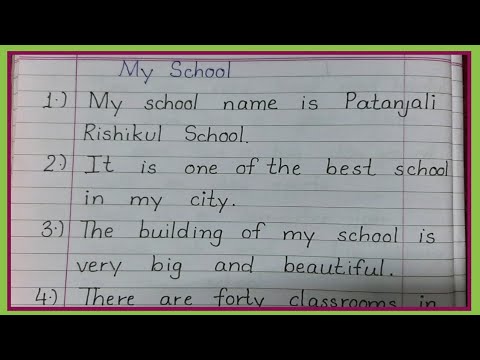 My School
1.) My school name is Patanjali
Rishikul School.
2.) It is one of the best school
in my city.
3.) The building of my school is
very big and beautiful.
4.) There are forty classrooms in